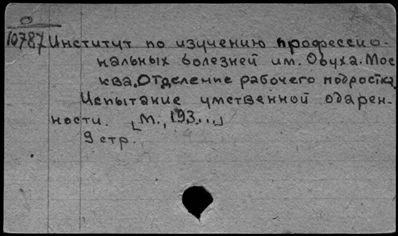 0
10787 Институт по изучению профессио-
нальных болезней им. Обуха. Мос-
ква. Отделение рабочего подростка.
Испытание умственной одарен-
ности. [М., 193...]
9 стр.